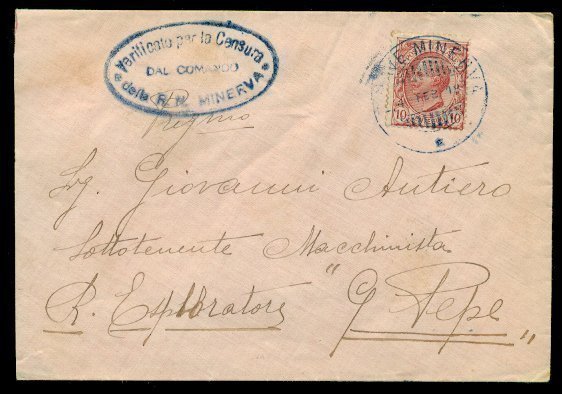 Verificato per la Censura
DAL COMANDO
della R. N. MINERVA
NAVE MINERVA
FEB
10 10
Sig. Giovanni Autiero
Sottotenente Macchinista
R. Esploratore "G. Pepe"